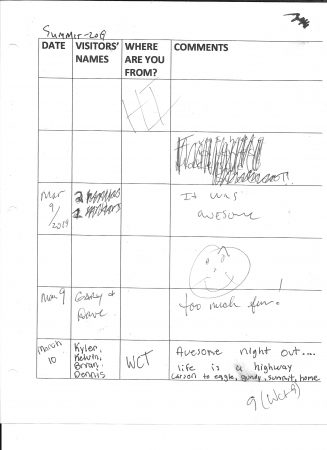 Summit-2019
DATE VISITORS' NAMES WHERE ARE YOU FROM? COMMENTS
HI
Mar 9/2019
2
1
It was
awesome
Mar 9 Gary + Dave too much fun!
March 10 Kyler, Kelvin, Brian, Dennis WCT Awesome night out....
life is a highway
Carson to eagle, sandy, summit, home
9 (WCT 9)